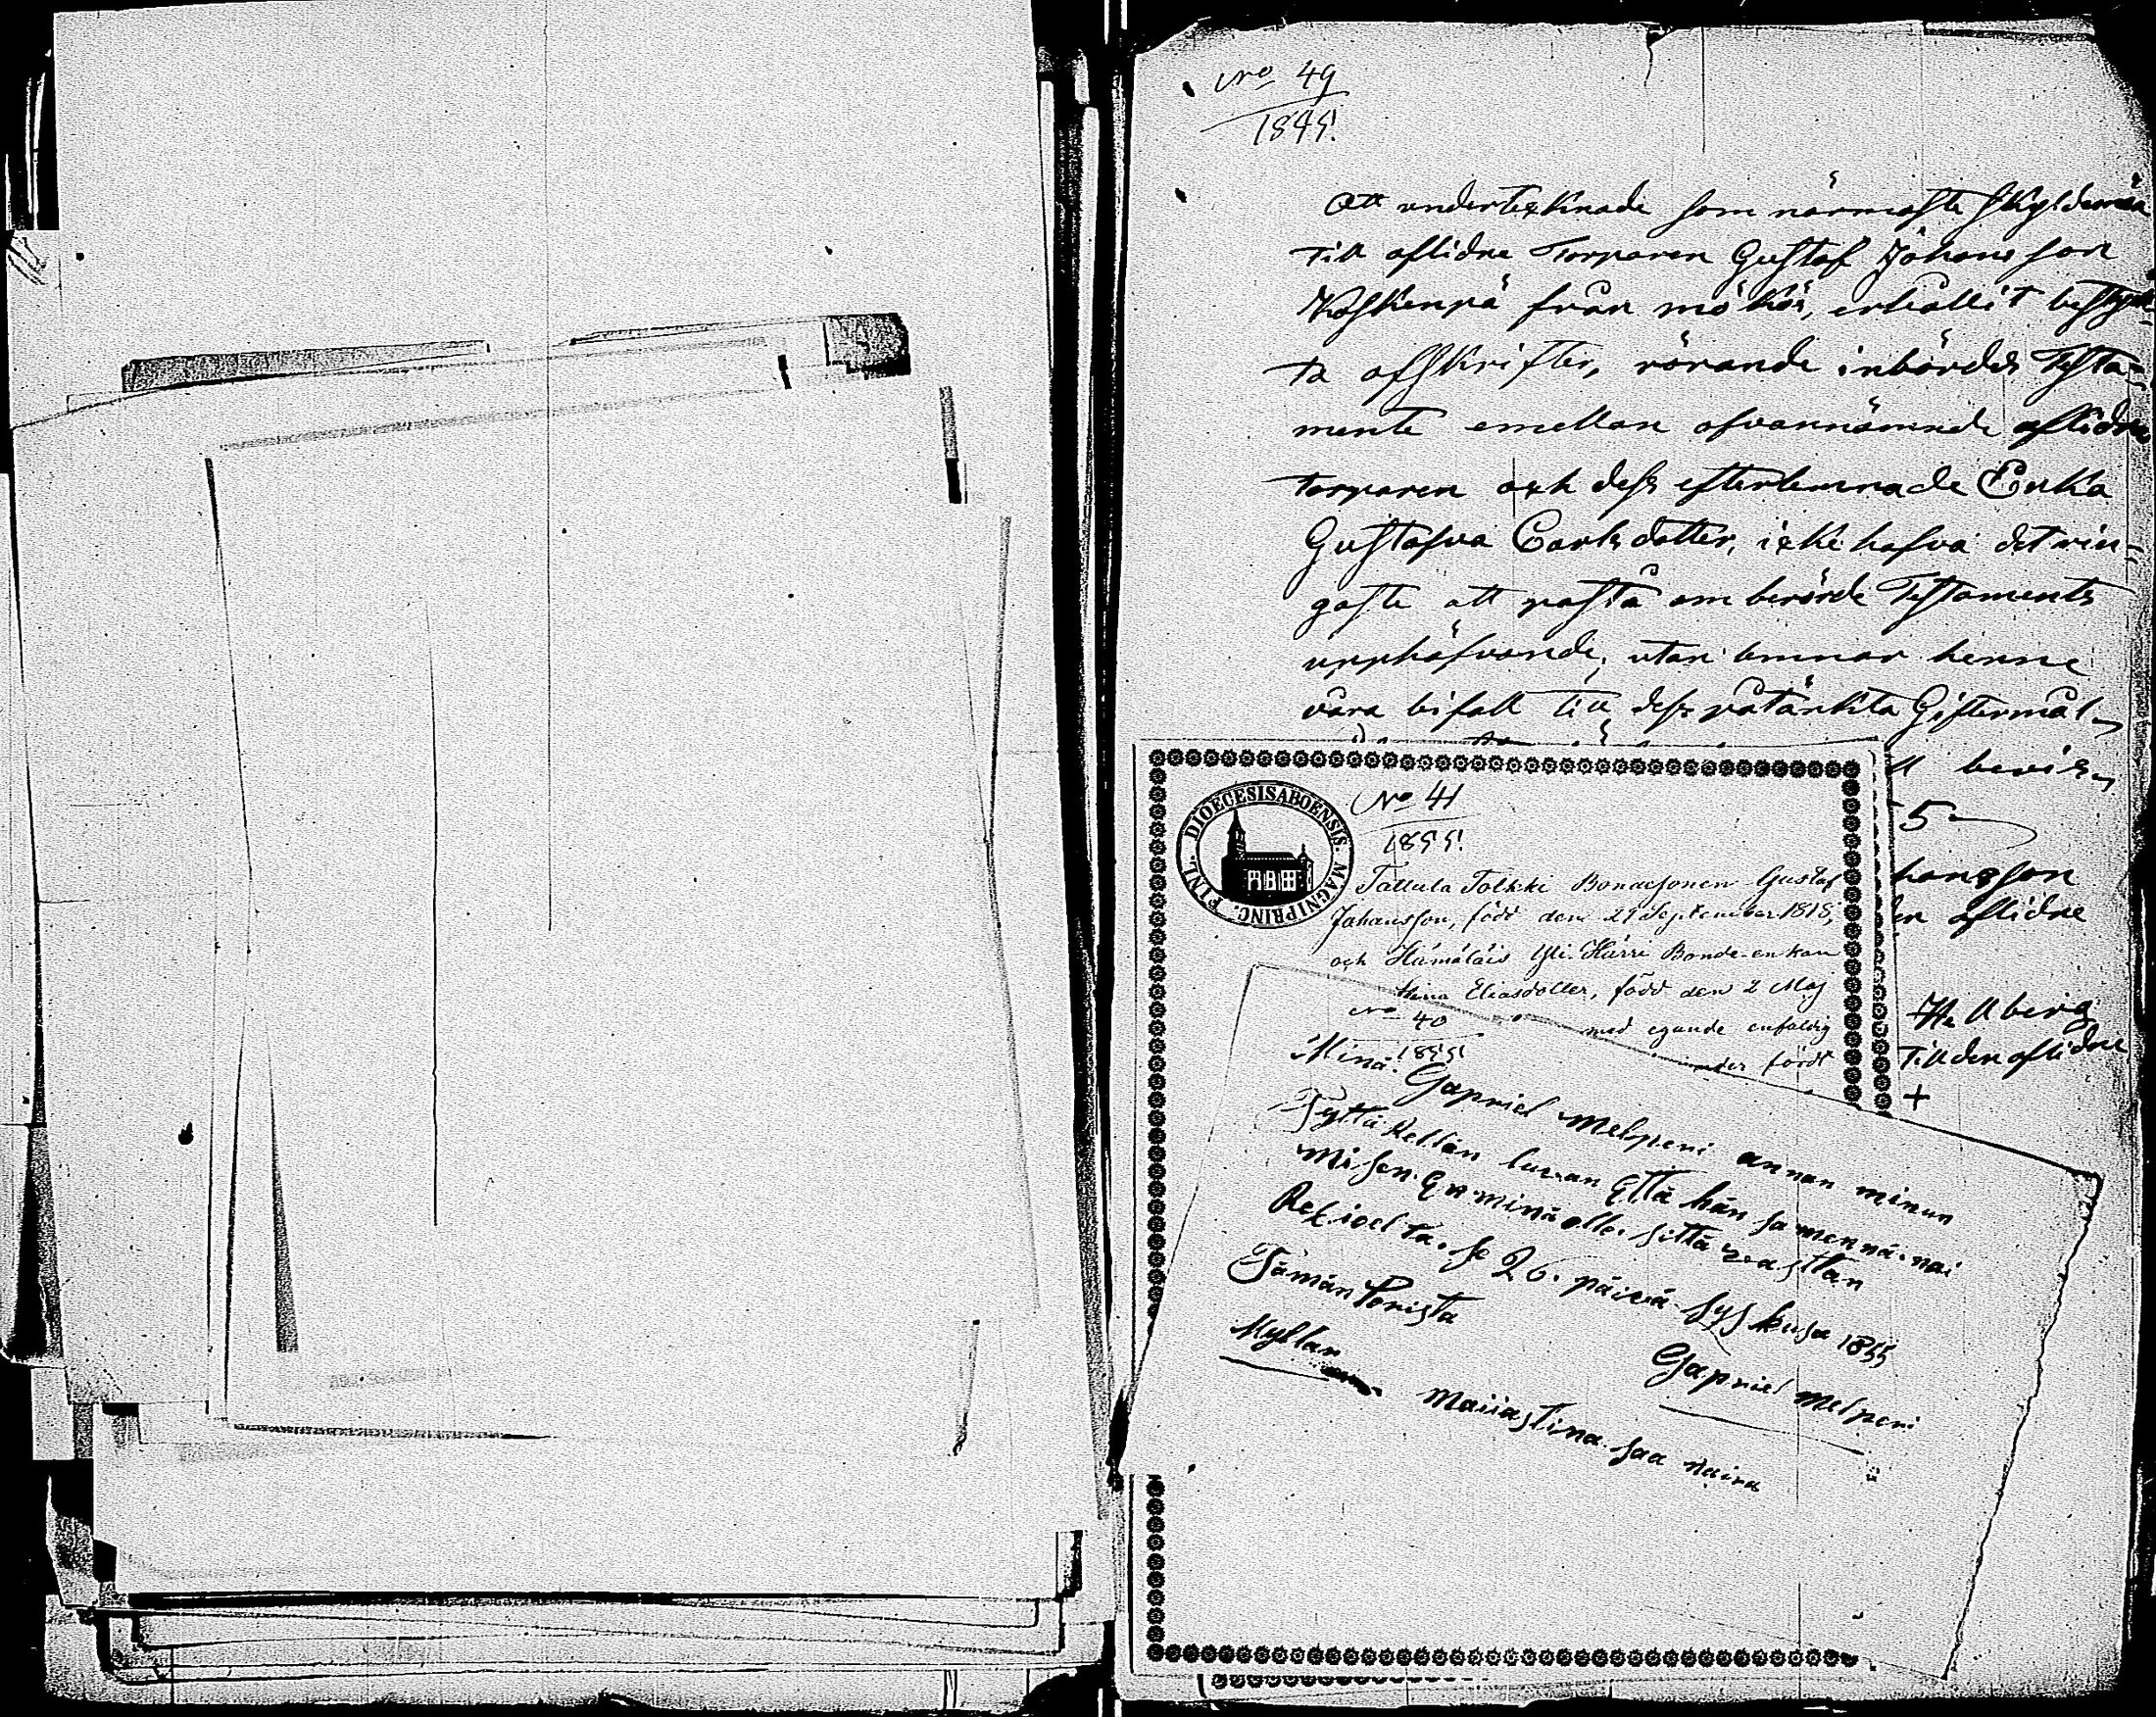 No 49
1855.
Att undertecknade som närmaste skyldemän
till aflidne Torparen Gustaf Johansson
Koskenpä från mökär, erhållit bestyrk-
ta afskrifter, rörande inbördes Testa-
mente emellan ofvannämnde aflidne
torparen och dess efterlemnade Enka
Gustafva Carlsdotter, icke hafva det rin-
gaste att påstå om berörde Testaments
upphäfvande, utan lemnar henne
vara bifall till dess påtänkta Giftermål
ll bevis,
5
hansson
en aflidne
Hellberg
till den aflidne
+
DIOECESIS ABOENSIS. MAGNI PRINC. FINL.
No 41
1855.
Tattula Tolkki Bondesonen Gustaf
Johansson, född den 29 September 1818,
och Hämäläis Yli-Härri Bonde-enkan
Stina Eliasdotter, född den 2 Maj
med egande enfaldig
under fördt
No 40
1855
Minä Gapriel Melpeni annan minun
Tyttärellän luvan Että hän sa mennä nai
misen En minä olle sittä vasttan
Rekioelta. se 26. päivä syskusa 1855
Tämän Porista
Myllan
Gapriel Melpeni
Maiiastina saa naira